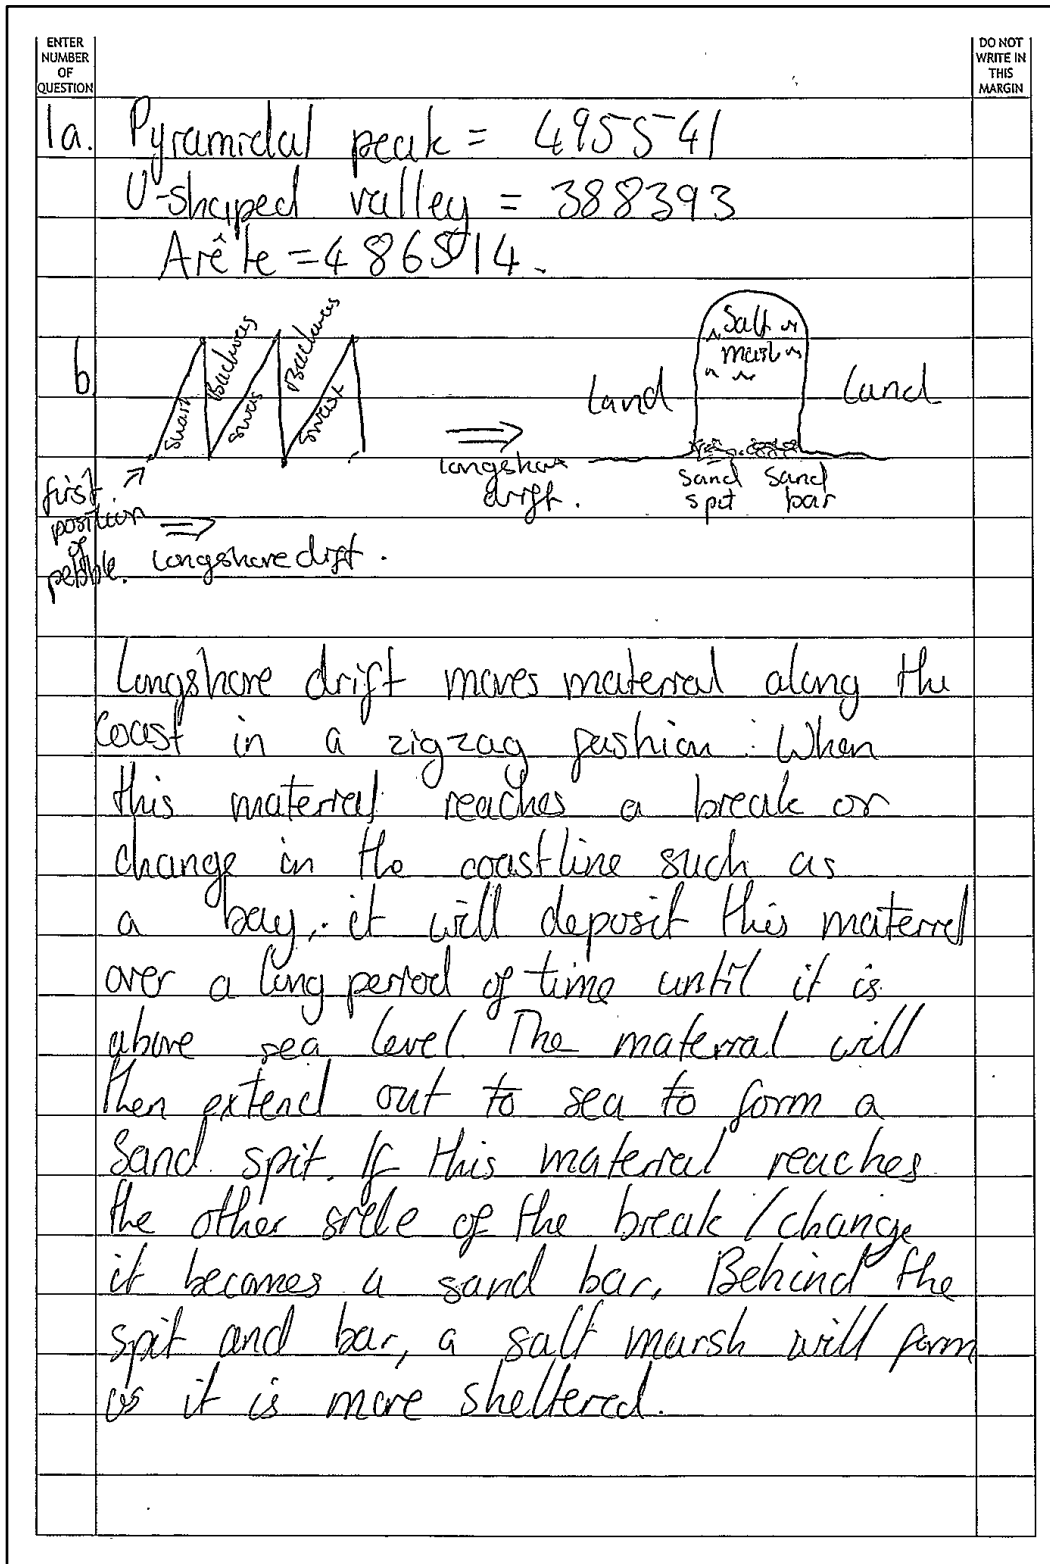 ENTER
NUMBER
OF
QUESTION
DO NOT
WRITE IN
THIS
MARGIN
1a. Pyramidal peak = 495541
U-shaped valley = 388393
Arête = 486514.
b
swash
Backwas
swas
Backwas
swash
first
position
of
pebble.
longshore drift.
longshore
drift.
land
Salt
marsh
land
sand
spit
sand
bar
Longshore drift moves material along the
coast in a zigzag fashion. When
this material reaches a break or
change in the coastline such as
a bay, it will deposit this material
over a long period of time until it is
above sea level. The material will
then extend out to sea to form a
Sand spit. If this material reaches
the other side of the break/change
it becomes a sand bar. Behind the
spit and bar, a salt marsh will form
as it is more sheltered.